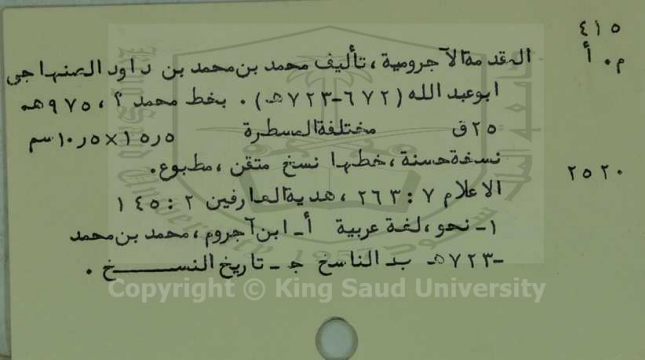 ٤١٥
م.أ المقدمة الآجرومية، تأليف محمد بن محمد بن داود الصنهاجي
ابوعبدالله (٦٧٢-٧٢٣هـ). بخط محمد ؟، ٩٧٥هـ
٢٥ق مختلفة المسطرة ١٥٫٥×١٠٫٥سم
نسخة حسنة، خطها نسخ متقن، مطبوع.
٢٥٢٠ الاعلام ٧: ٢٦٣، هدية العارفين ٢: ١٤٥
١- نحو، لغة عربية أ- ابن آجروم، محمد بن محمد
-٧٢٣هـ ب- الناسخ ج- تاريخ النسخ.
Copyright © King Saud University